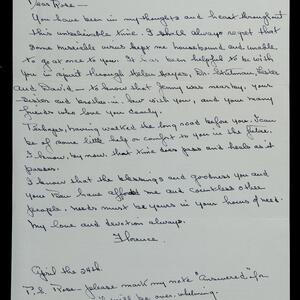 Dear Rose —
You have been in my thoughts and heart throughout
this unbelievable time. I shall always regret that
some miserable virus kept me housebound and unable
to go at once to you. It has been helpful to be with
you in spirit through Helen Hayes, Dr.
and David — to know that Jenny was nearby, your
sister and brother-in-law with you, and you many
friends who love you dearly.
Perhaps, having walked the long road before you, I can
be of some little help or comfort to you in the future.
I know, by now, that time does pass and heals as it
passes.
I know that the blessings and goodness you and
your Ben have me and countless other
people, needs must be yours in your hours of need.
My love and devotion always.
Florence.
April the 24th.
P.S. Rose — please mark my note "Answered" for
will be over-whelming.